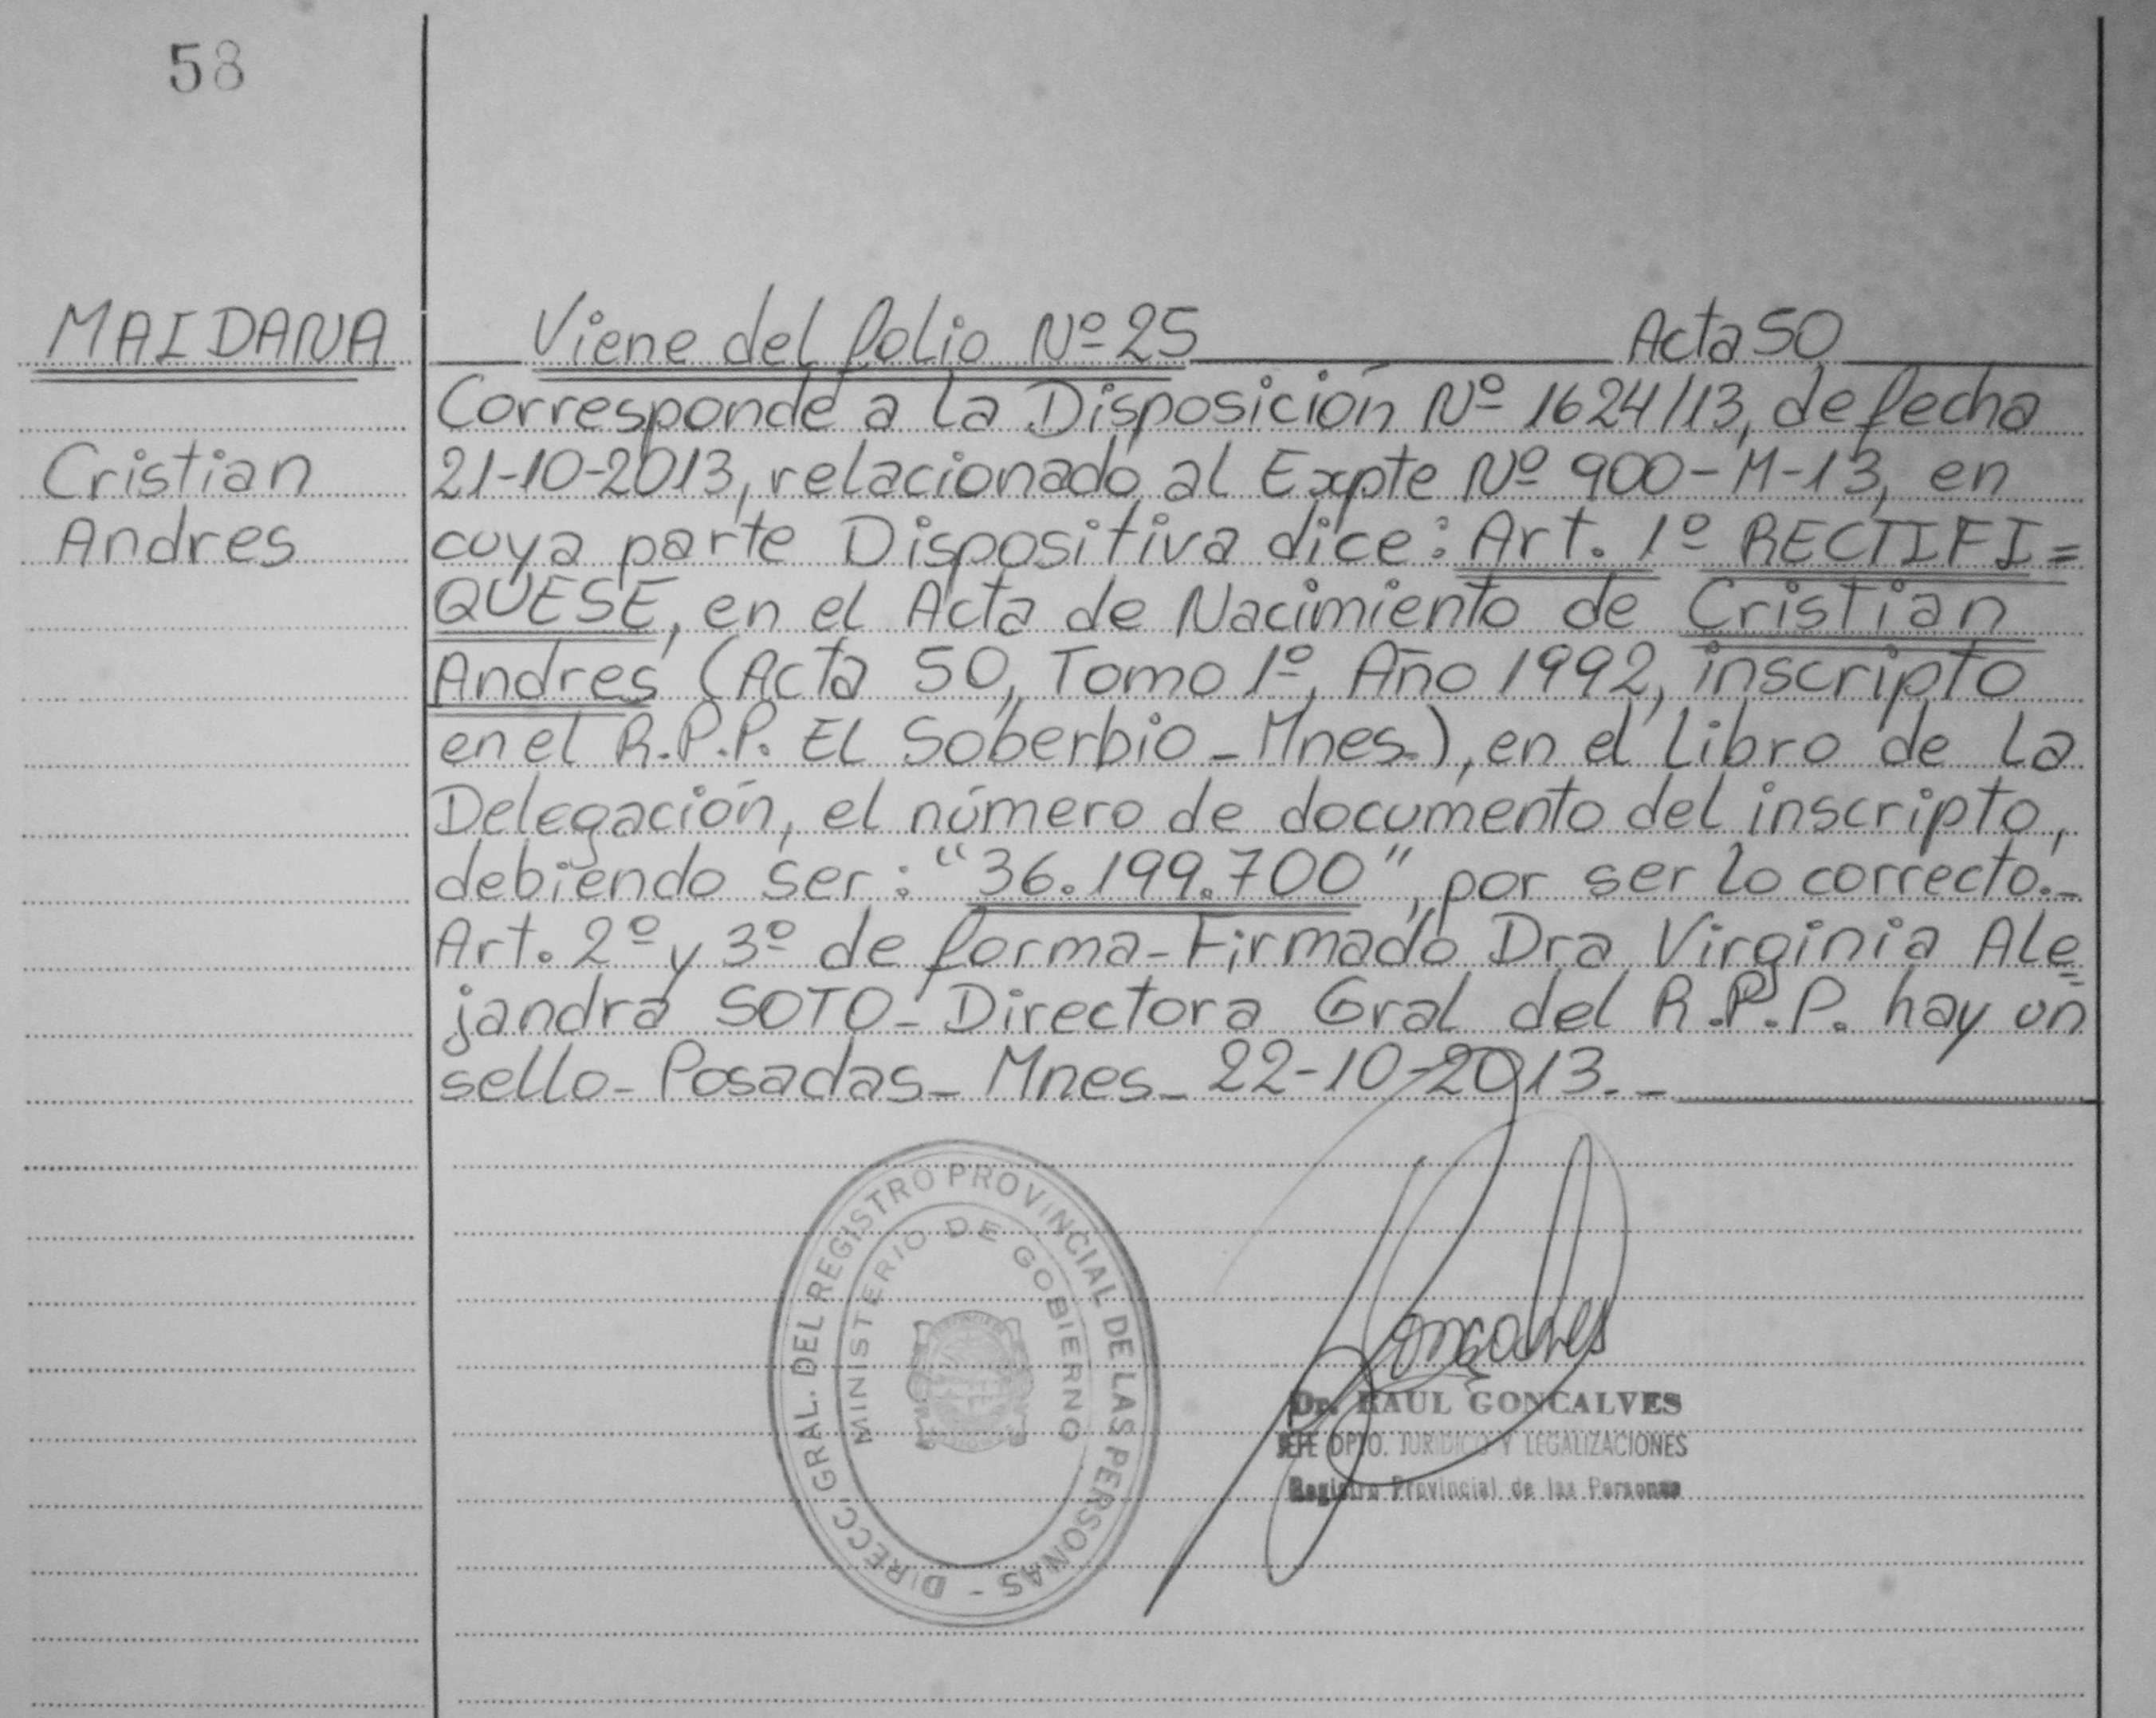 58
MAIDANA
Cristian
Andres
Viene del folio Nº 25 Acta 50
Corresponde a la Disposición Nº 1624/13, de fecha
21-10-2013, relacionado al Expte Nº 900-M-13, en
cuya parte Dispositiva dice: Art. 1º RECTIFI=
QUESE, en el Acta de Nacimiento de Cristian
Andres (Acta 50, Tomo 1º, Año 1992, inscripto
en el R.P.P. El Soberbio - Mnes.), en el Libro de la
Delegación, el número de documento del inscripto,
debiendo ser: "36.199.700", por ser lo correcto.-
Art. 2º y 3º de forma - Firmado Dra Virginia Ale=
jandra SOTO - Directora Gral del R.P.P. hay un
sello - Posadas - Mnes - 22-10-2013.-
DIRECC. GRAL. DEL REGISTRO PROVINCIAL DE LAS PERSONAS -
MINISTERIO DE GOBIERNO
Goncalves
Dr. RAUL GONCALVES
JEFE DPTO. JURIDICO Y LEGALIZACIONES
Registro Provincial de las Personas